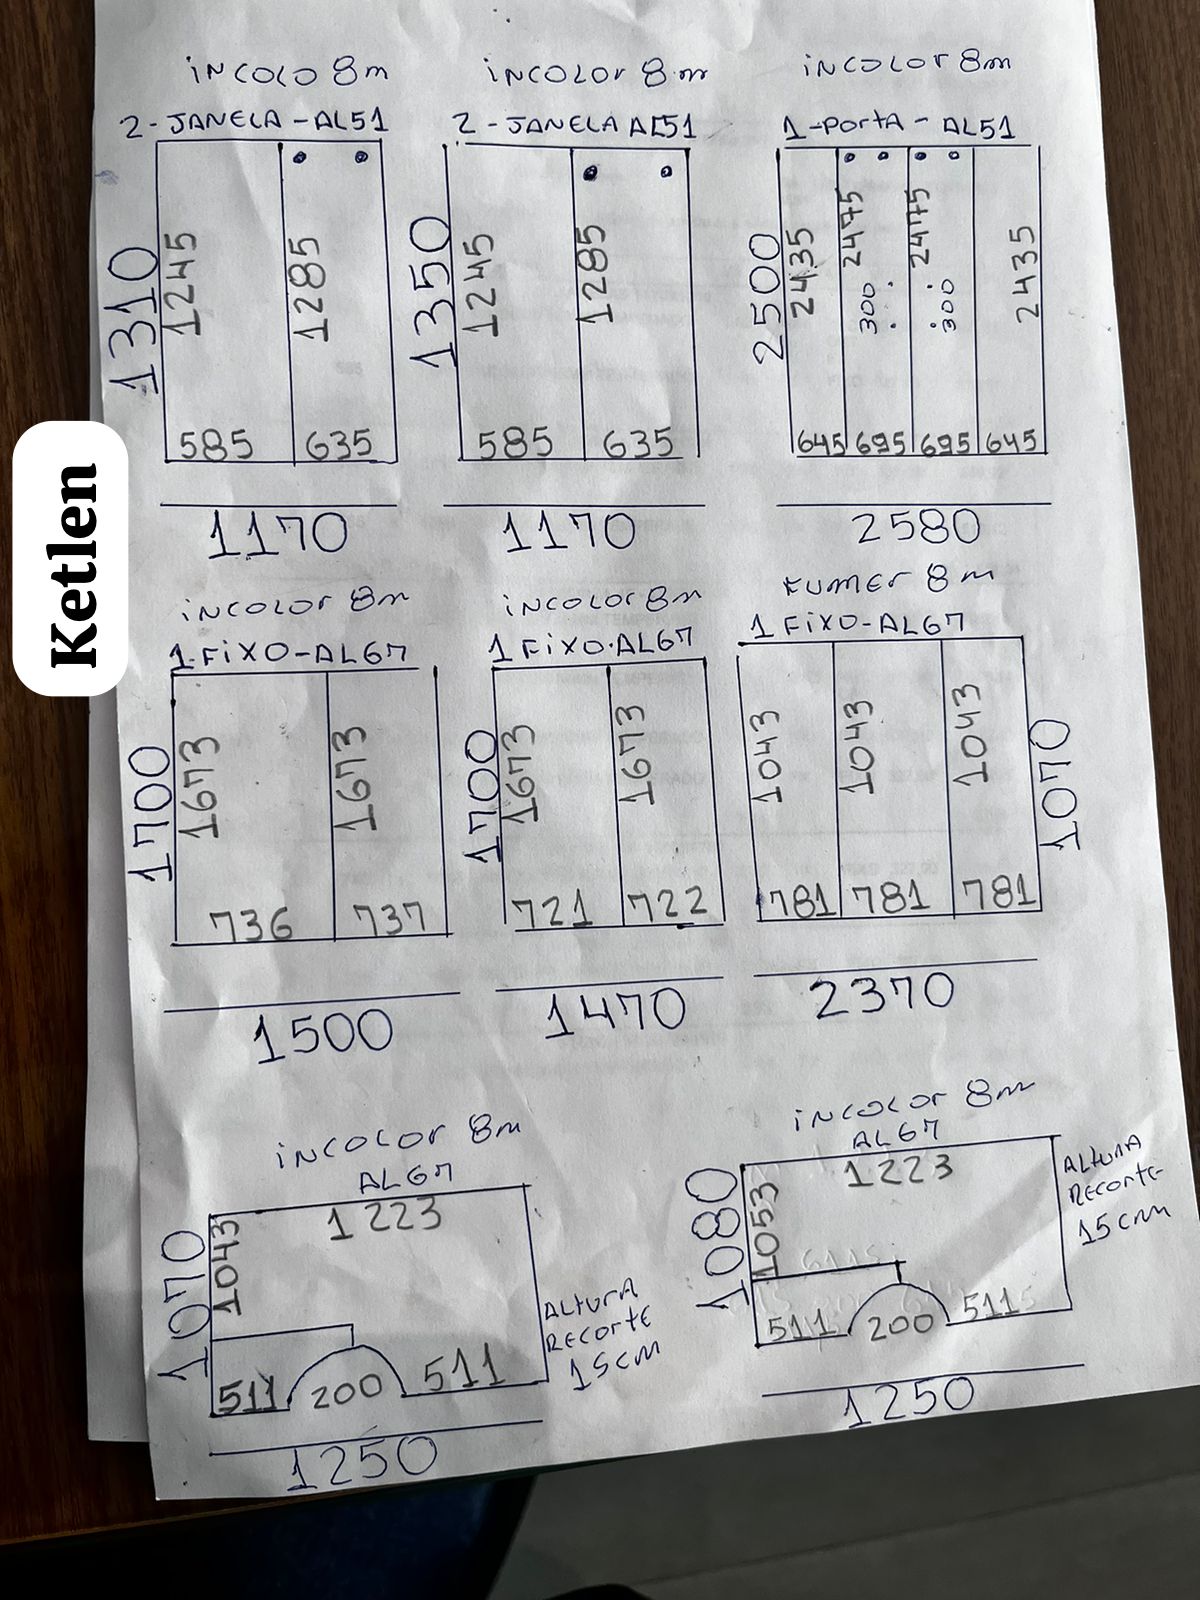 iNCOLO 8m
2-JANELA-AL51
1310
1245
1285
585
635
1170
iNCOLOr 8m
2-JANELA AL51
1350
1245
1285
585
635
1170
iNCOLOr 8m
1-POrtA-AL51
2500
2435
2475
2475
2435
300
300
645
695
695
645
2580
Ketlen
iNCOLOr 8m
1-FiXO-AL67
1700
1673
1673
736
737
1500
iNCOLOr 8m
1 FiXO-AL67
1700
1673
1673
721
722
1470
FUMEr 8m
1 FiXO-AL67
1043
1043
1043
1070
781
781
781
2370
iNCOLOr 8m
AL67
1223
1070
1043
511
200
511
ALtURA
RECOrtE
15cm
1250
iNCOLOr 8m
AL67
1223
1080
1053
511
200
511
ALtURA
RECOrtE
15cm
1250